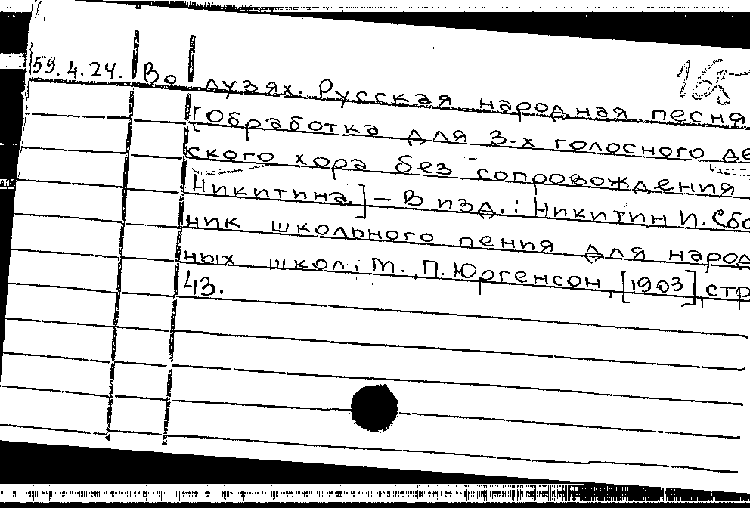 165
59.4.24. Во лузях. Русская народная песня
[Обработка для 3-х голосного де
ского хора без сопровождения
Никитина.] – В изд.: Никитин И. Сбо
ник школьного пения для народ
ных школ; М., П. Юргенсон, [1903], стр
43.